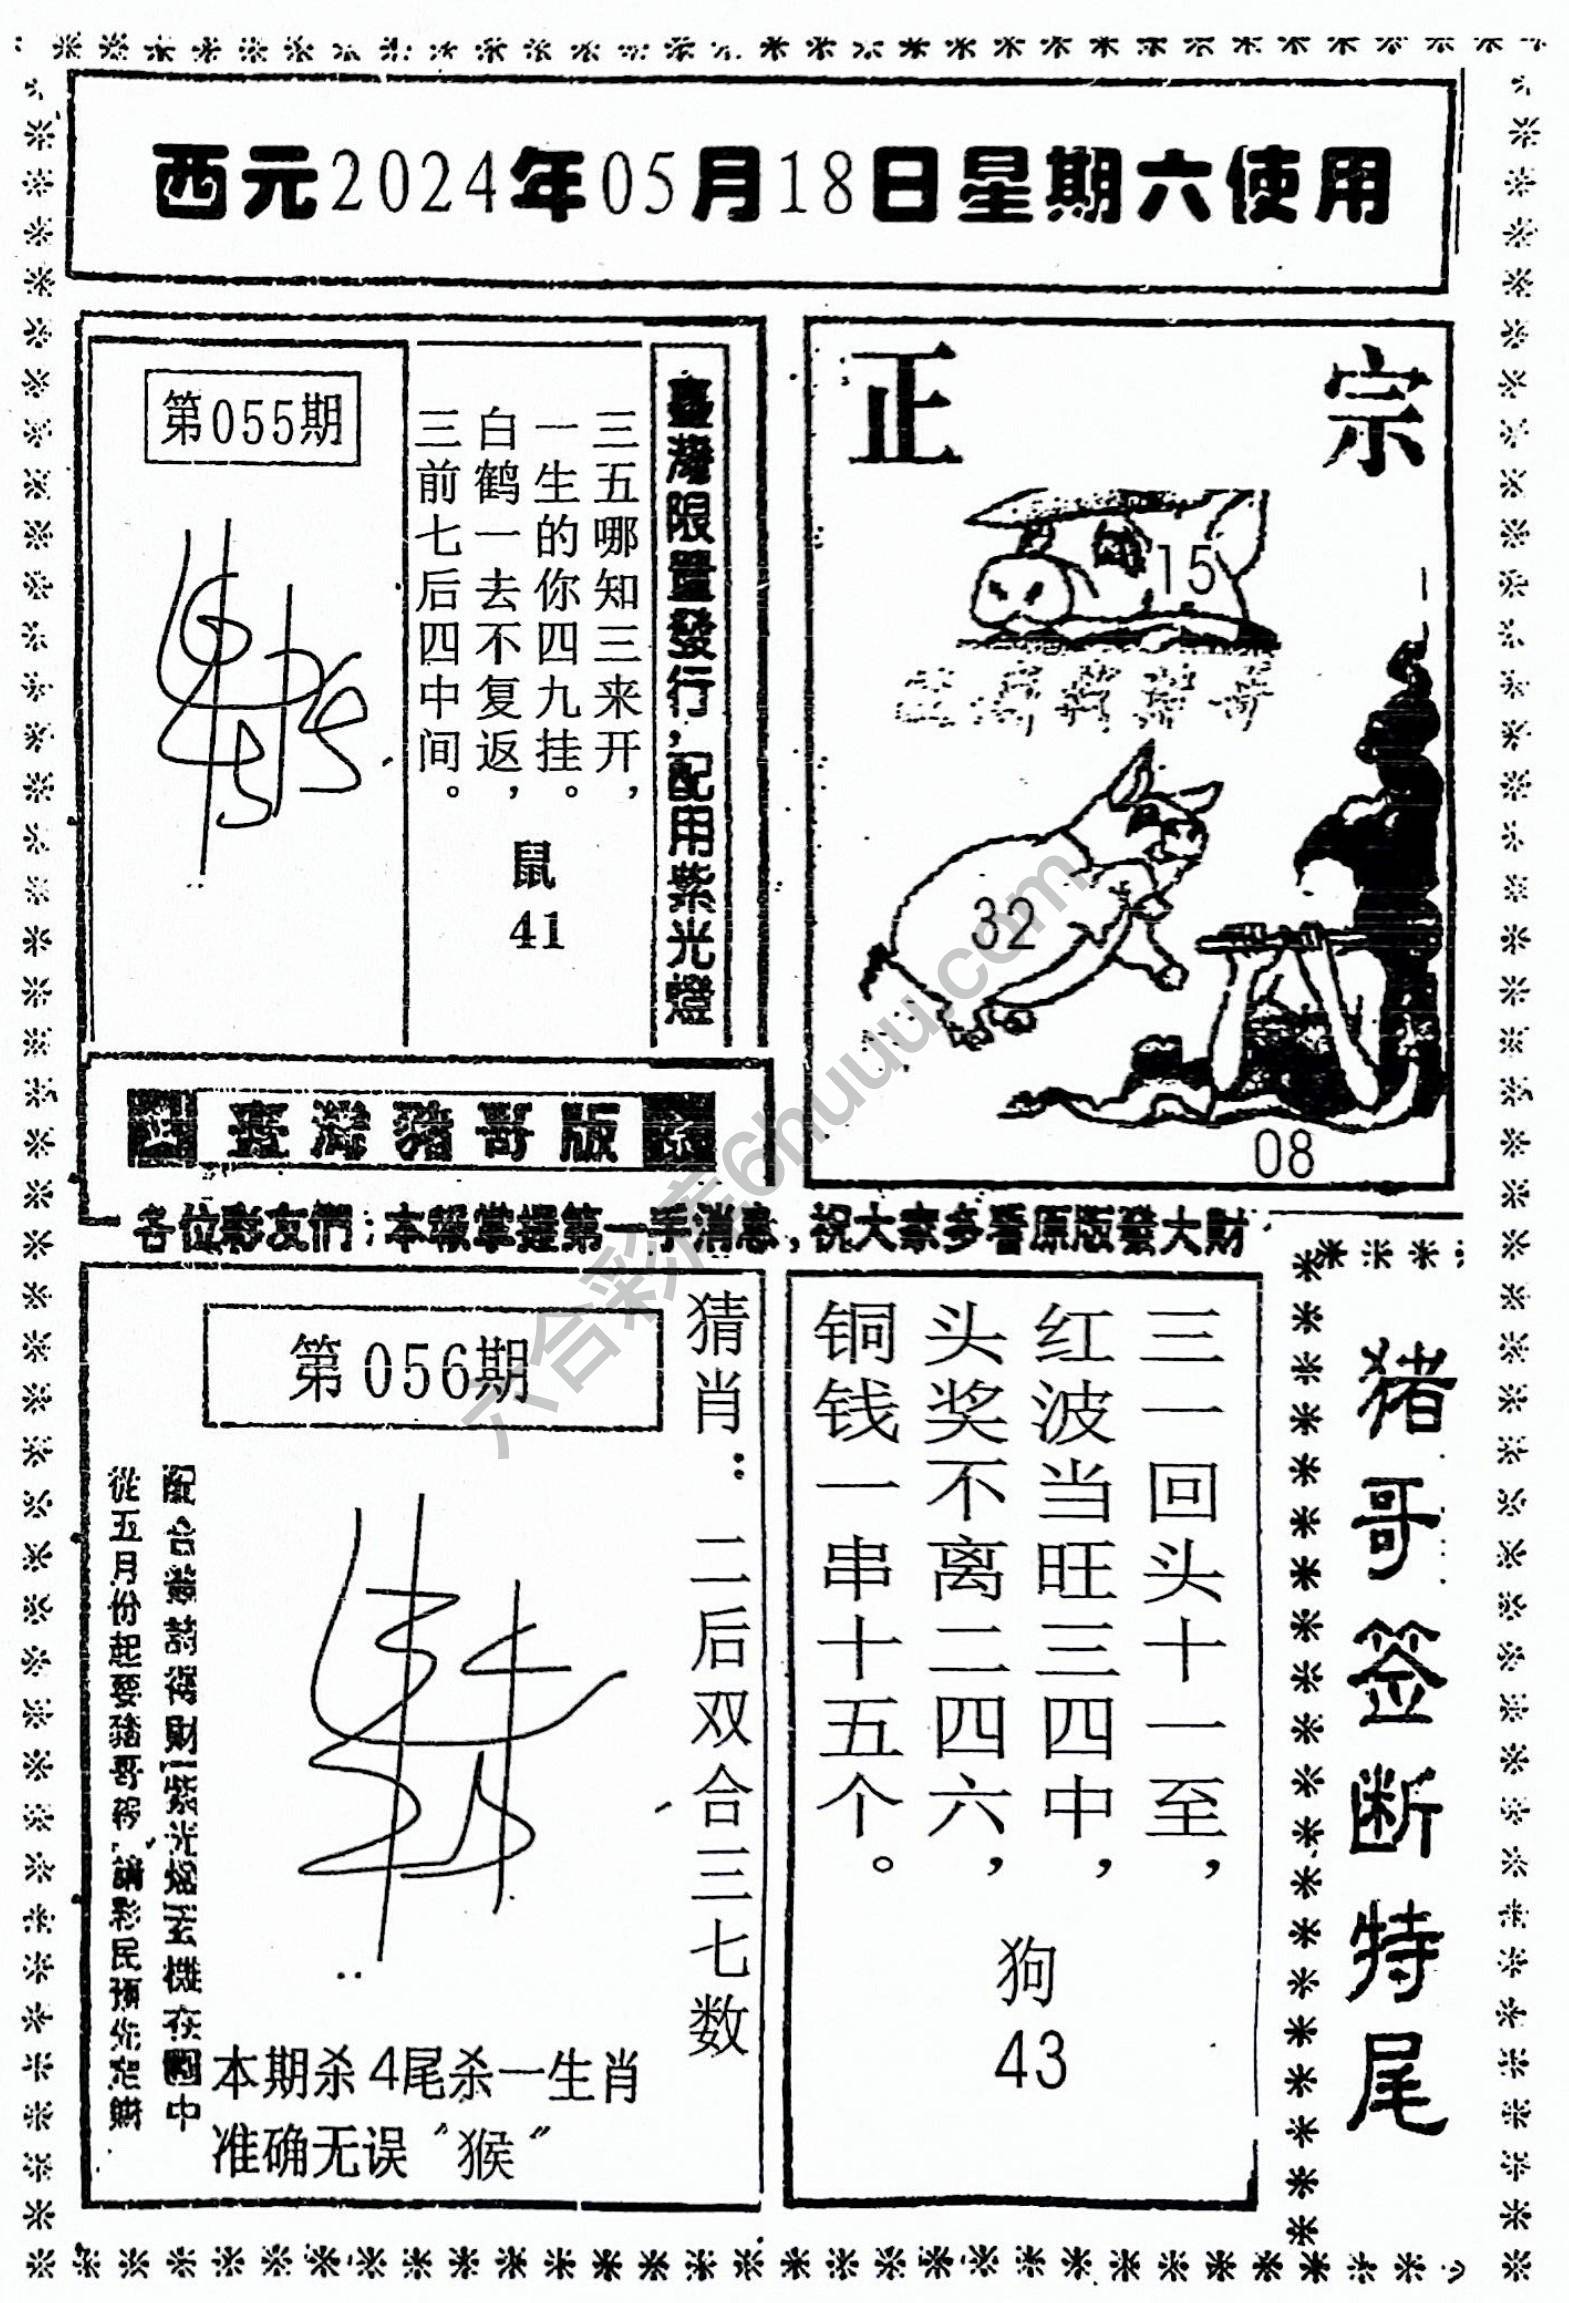 西元2024年05月18日星期六使用
第055期
三五哪知三来开，
一生的你四九挂。
白鹤一去不复返，
三前七后四中间。
鼠
41
臺灣限量發行，配用紫光燈
正宗
15
32
08
臺灣豬哥版
各位彩友們：本報掌握第一手消息，祝大家多看原版發大財
第056期
猜肖：二后双合三七数
從五月份起要豬哥報
本期杀4尾杀一生肖
准确无误“猴”
三一回头十一至，
红波当旺三四中，
头奖不离二四六，
铜钱一串十五个。
狗
43
猪哥签断特尾
六合彩库6huuu.com